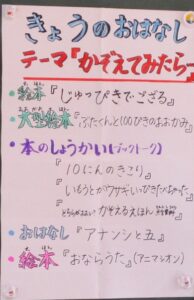 きょうのおはなし
テーマ『かぞえてみたら…
・絵本『じゅっぴきでござる』
・大型絵本『ぶたくんと100ぴきのおおかみ』
・本のしょうかい(ブックトーク)
『10にんのきこり』
『いもうとがウサギいっぴきたべちゃった』
『どちらがおおい?かぞえるえほん
・おはなし『アナンシと五』
・絵本『おならうた』(アニマシオン)